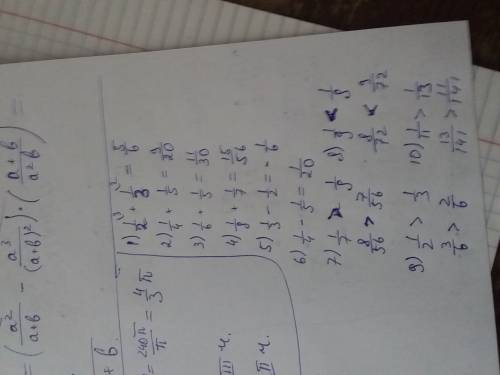 = (a²/(a+b) − a³/(a+b)²) · ((a+b)/(a²b)) =
+ b.
= 240π/π = 4/3 π
III ч.
II ч.
1) 1/2 + 1/3 = 5/6
2) 1/4 + 1/5 = 9/20
3) 1/6 + 1/5 = 11/30
4) 1/8 + 1/7 = 15/56
5) 1/3 − 1/2 = − 1/6
6) 1/4 − 1/5 = 1/20
7) 1/7 > 1/8
8/56 > 7/56
8) 1/9 < 1/8
8/72 < 9/72
9) 1/2 > 1/3
3/6 > 2/6
10) 1/11 > 1/13
13/141 > 11/141